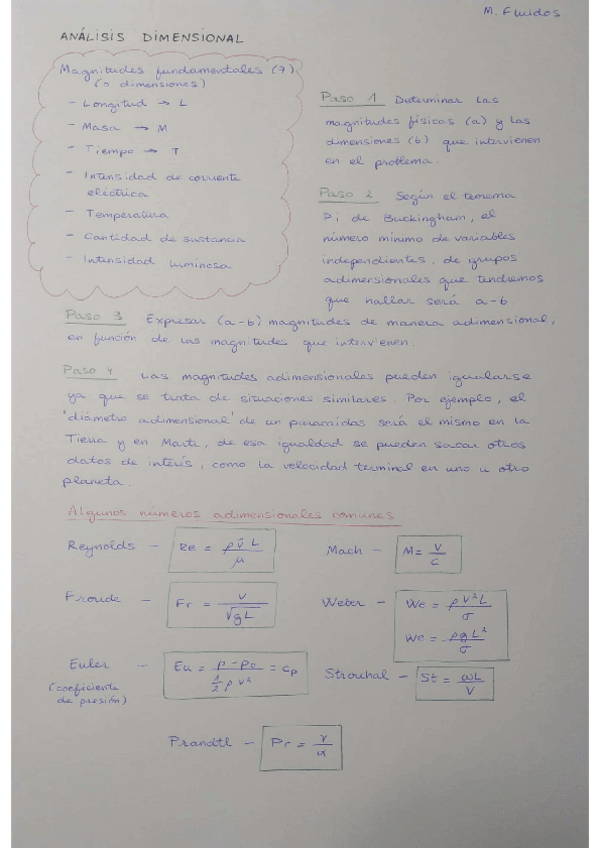 M. Fluidos
ANÁLISIS DIMENSIONAL
Magnitudes fundamentales (7)
(o dimensiones)
- Longitud → L
- Masa → M
- Tiempo → T
- Intensidad de corriente
eléctrica
- Temperatura
- Cantidad de sustancia
- Intensidad luminosa
Paso 1 Determinar las
magnitudes físicas (a) y las
dimensiones (b) que intervienen
en el problema.
Paso 2 Según el teorema
Pi de Buckingham, el
número mínimo de variables
independientes, de grupos
adimensionales que tendremos
que hallar será a-b
Paso 3 Expresar (a-b) magnitudes de manera adimensional,
en función de las magnitudes que intervienen.
Paso 4 Las magnitudes adimensionales pueden igualarse
ya que se trata de situaciones similares. Por ejemplo, el
'diámetro adimensional' de un paracaídas será el mismo en la
Tierra y en Marte, de esa igualdad se pueden sacar otros
datos de interés, como la velocidad terminal en uno u otro
planeta.
Algunos números adimensionales comunes
Reynolds - Re = ρ v̄ L / μ
Mach - M = V / c
Froude - Fr = v / √gL
Weber - We = ρ V² L / σ
We = ρ g L² / σ
Euler - Eu = p - p₀ / ½ ρ v² = Cp
(coeficiente
de presión)
Strouhal - St = ωL / V
Prandtl - Pr = ν / α